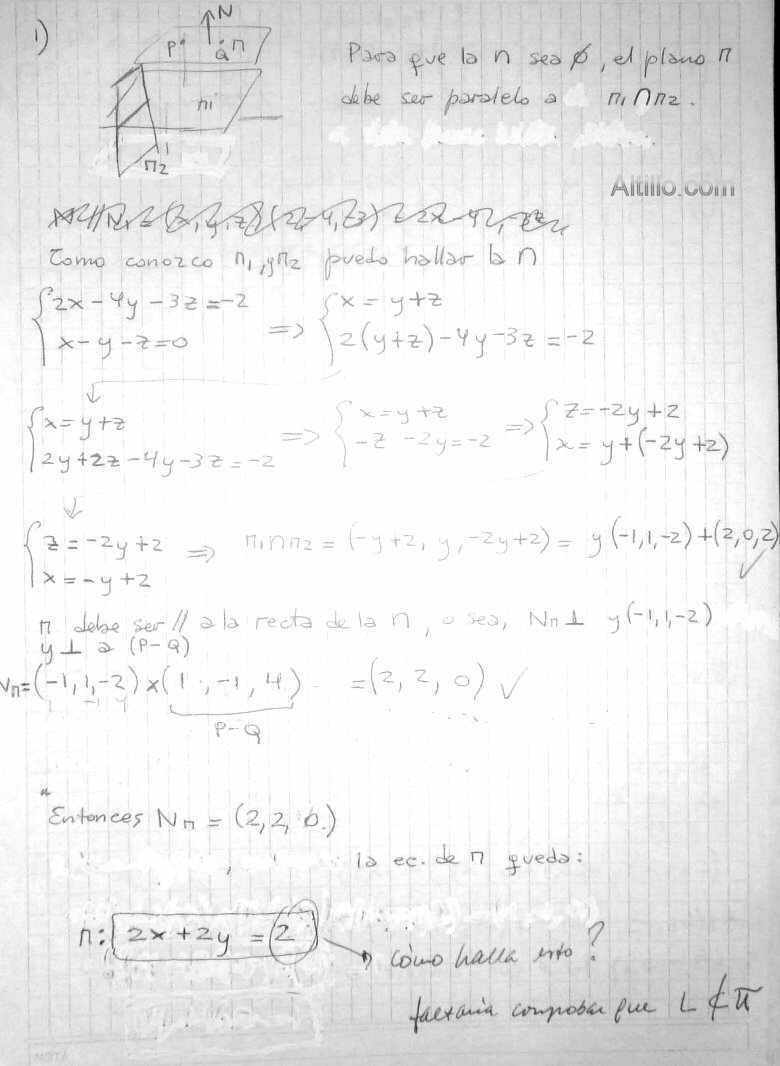 1)
N
P Q π
π1
π2
Para que la ∩ sea ∅, el plano π
debe ser paralelo a π1∩π2.
Altillo.com
Como conozco π1, y π2 puedo hallar la ∩
{2x-4y-3z=-2 => {x=y+z
{x-y-z=0 {2(y+z)-4y-3z=-2
{x=y+z => {x=y+z => {z=-2y+2
{2y+2z-4y-3z=-2 {-z -2y=-2 {x=y+(-2y+2)
{z=-2y+2 => π1∩π2 = (-y+2, y, -2y+2) = y(-1,1,-2)+(2,0,2)
{x=-y+2
π debe ser // a la recta de la ∩, o sea, Nπ ⊥ y(-1,1,-2)
y ⊥ a (P-Q)
Nπ=(-1,1,-2)×(1,-1,4) =(2,2,0) ✓
P-Q
Entonces Nπ = (2,2,0.)
la ec. de π queda:
π: 2x+2y = 2
→ cómo halla esto?
faltaría comprobar que L ⊄ π